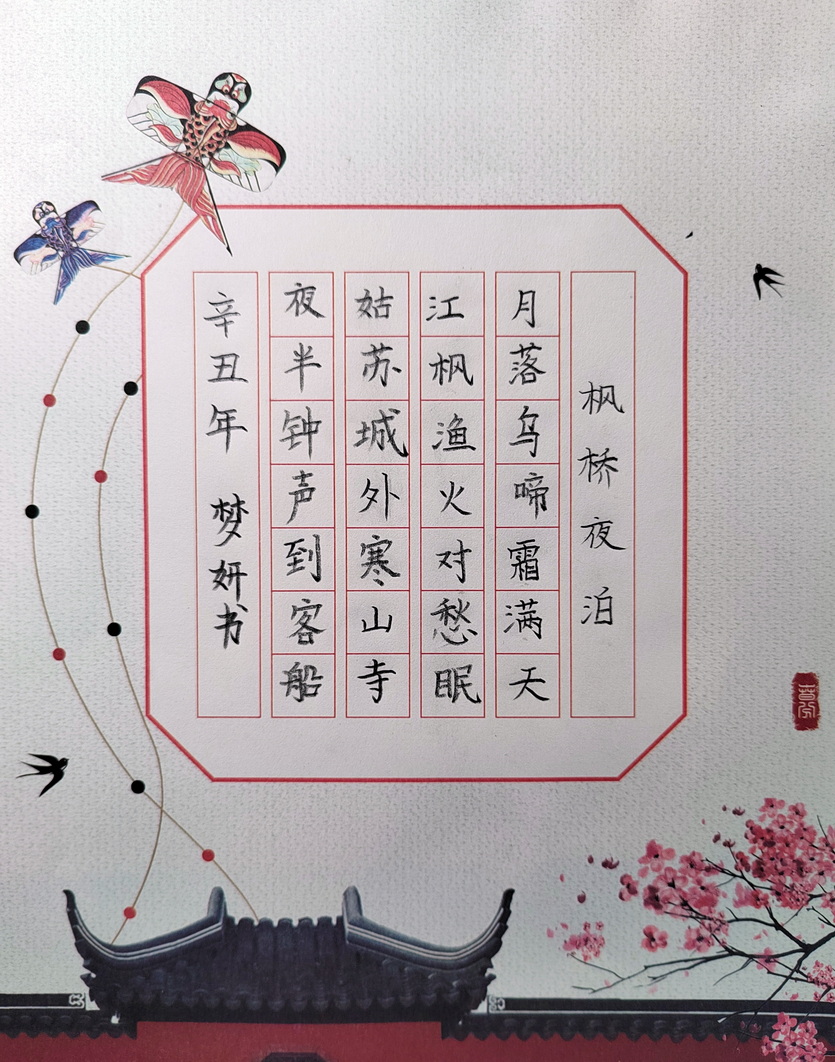 枫桥夜泊
月落乌啼霜满天
江枫渔火对愁眠
姑苏城外寒山寺
夜半钟声到客船
辛丑年 梦妍书